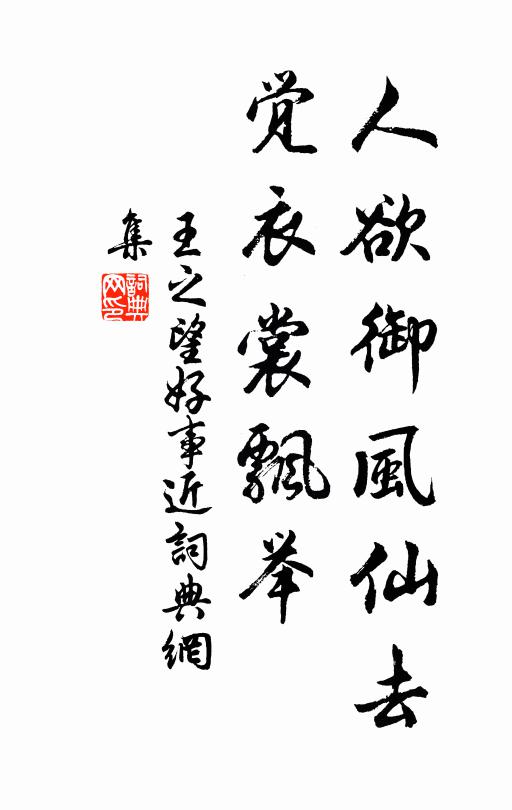 人欲御風仙去
觉衣裳飄举
王之望好事近詞典網
集
詞典
网印